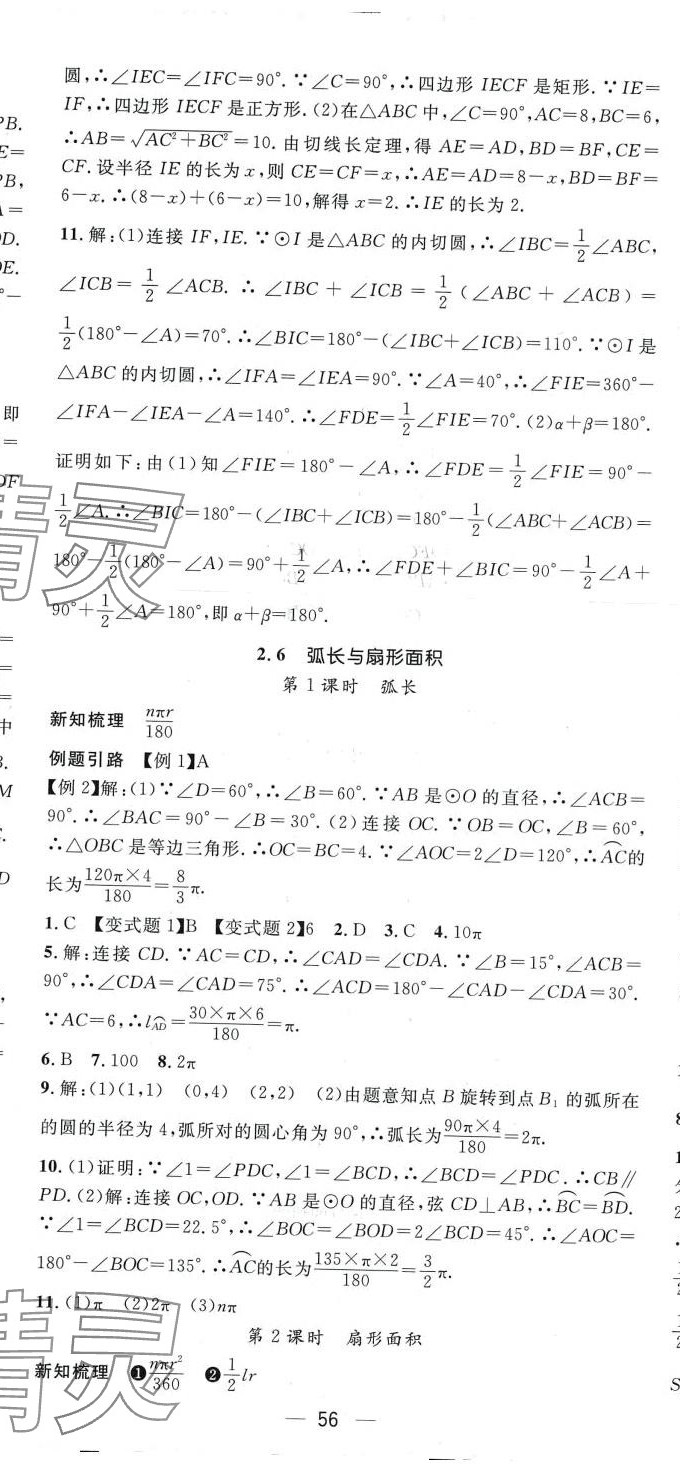 圆,∴∠IEC=∠IFC=90°.∵∠C=90°,∴四边形 IECF 是矩形.∵IE=
IF,∴四边形 IECF 是正方形.(2)在△ABC 中,∠C=90°,AC=8,BC=6,
∴AB=√(AC²+BC²)=10.由切线长定理,得 AE=AD,BD=BF,CE=
CF.设半径 IE 的长为 x,则 CE=CF=x,∴AE=AD=8-x,BD=BF=
6-x.∴(8-x)+(6-x)=10,解得 x=2.∴IE 的长为 2.
11.解:(1)连接 IF,IE.∵⊙I 是△ABC 的内切圆,∴∠IBC=1/2∠ABC,
∠ICB=1/2∠ACB.∴∠IBC+∠ICB=1/2(∠ABC+∠ACB)=
1/2(180°-∠A)=70°.∴∠BIC=180°-(∠IBC+∠ICB)=110°.∵⊙I 是
△ABC 的内切圆,∴∠IFA=∠IEA=90°.∵∠A=40°,∴∠FIE=360°-
∠IFA-∠IEA-∠A=140°.∴∠FDE=1/2∠FIE=70°.(2)α+β=180°.
证明如下:由(1)知∠FIE=180°-∠A,∴∠FDE=1/2∠FIE=90°-
1/2∠A.∴∠BIC=180°-(∠IBC+∠ICB)=180°-1/2(∠ABC+∠ACB)=
180°-1/2(180°-∠A)=90°+1/2∠A,∴∠FDE+∠BIC=90°-1/2∠A+
90°+1/2∠A=180°,即 α+β=180°.
2.6 弧长与扇形面积
第 1 课时 弧长
新知梳理 nπr/180
例题引路 【例 1】A
【例 2】解:(1)∵∠D=60°,∴∠B=60°.∵AB 是⊙O 的直径,∴∠ACB=
90°.∴∠BAC=90°-∠B=30°.(2)连接 OC.∵OB=OC,∠B=60°,
∴△OBC 是等边三角形.∴OC=BC=4.∵∠AOC=2∠D=120°,∴A͡C的
长为120π×4/180=8/3π.
1.C 【变式题 1】B 【变式题 2】6 2.D 3.C 4.10π
5.解:连接 CD.∵AC=CD,∴∠CAD=∠CDA.∵∠B=15°,∠ACB=
90°,∴∠CDA=∠CAD=75°.∴∠ACD=180°-∠CAD-∠CDA=30°.
∵AC=6,∴l A͡D=30×π×6/180=π.
6.B 7.100 8.2π
9.解:(1)(1,1) (0,4) (2,2) (2)由题意知点 B 旋转到点 B₁ 的弧所在
的圆的半径为 4,弧所对的圆心角为 90°,∴弧长为90π×4/180=2π.
10.(1)证明:∵∠1=∠PDC,∠1=∠BCD,∴∠BCD=∠PDC.∴CB∥
PD.(2)解:连接 OC,OD.∵AB 是⊙O 的直径,弦 CD⊥AB,∴B͡C=B͡D.
∵∠1=∠BCD=22.5°,∴∠BOC=∠BOD=2∠BCD=45°.∴∠AOC=
180°-∠BOC=135°.∴A͡C的长为135×π×2/180=3/2π.
11.(1)π (2)2π (3)nπ
第 2 课时 扇形面积
新知梳理 ❶nπr²/360 ❷1/2lr
— 56 —
精灵
精灵
PB.
E=
PB,
A=
OD.
DE.
°-
即
=
DF
=
=
=
中
B.
M
C.
D